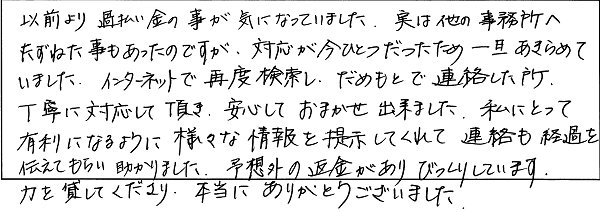 以前より過払い金の事が気になっていました。実は他の事務所へ
たずねた事もあったのですが、対応が今ひとつだったため一旦あきらめて
いました。インターネットで再度検索し、だめもとで連絡した所、
丁寧に対応して頂き、安心しておまかせ出来ました。私にとって
有利になるように様々な情報を提示してくれて連絡も経過を
伝えてもらい助かりました。予想外の返金がありびっくりしています。
力を貸してくださり、本当にありがとうございました。